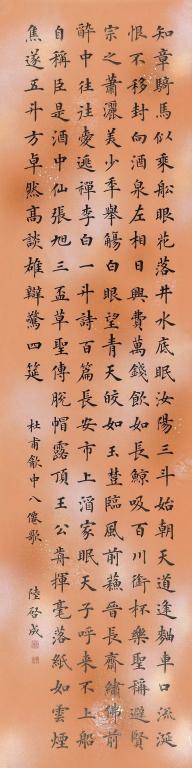 知章騎馬似乘舩眼花落井水底眠汝陽三斗始朝天道逢麴車口流涎
恨不移封向酒泉左相日興費萬錢飲如長鯨吸百川銜杯樂聖稱避賢
宗之蕭灑美少年舉觴白眼望青天皎如玉樹臨風前蘇晉長齋繡佛前
醉中往往愛逃禪李白一斗詩百篇長安市上酒家眠天子呼来不上船
自稱臣是酒中仙張旭三盃草聖傳脫帽露頂王公前揮毫落紙如雲煙
焦遂五斗方卓然髙談雄辯驚四筵
杜甫飲中八僊歌
陸啓成